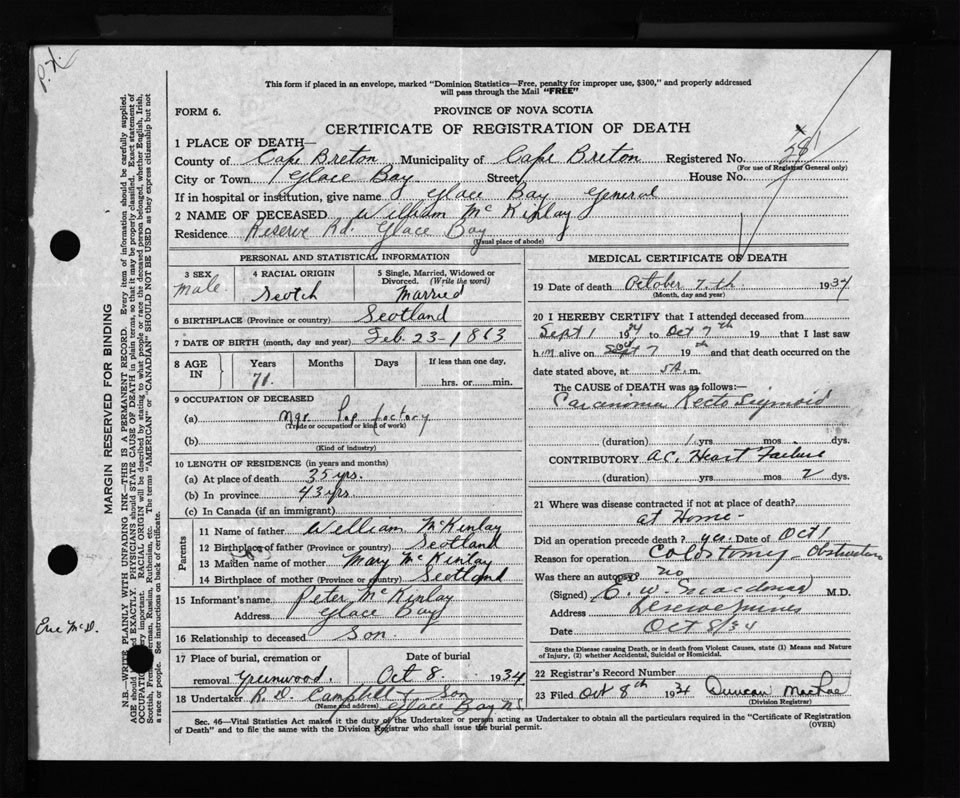 P.X.
This form if placed in an envelope, marked "Dominion Statistics—Free, penalty for improper use, $300," and properly addressed
will pass through the Mail "FREE"
FORM 6.
PROVINCE OF NOVA SCOTIA
CERTIFICATE OF REGISTRATION OF DEATH
1 PLACE OF DEATH—
County of Cape Breton Municipality of Cape Breton Registered No. 581
(For use of Registrar General only)
City or Town Glace Bay Street House No.
If in hospital or institution, give name Glace Bay General
2 NAME OF DECEASED William McKinlay
Residence Reserve Rd. Glace Bay
(Usual place of abode)
PERSONAL AND STATISTICAL INFORMATION
3 SEX
Male
4 RACIAL ORIGIN
Scotch
5 Single, Married, Widowed or
Divorced. (Write the word)
Married
6 BIRTHPLACE (Province or country) Scotland
7 DATE OF BIRTH (month, day and year) Feb. 23-1863
8 AGE
IN
Years
71.
Months
Days
If less than one day,
hrs. or min.
9 OCCUPATION OF DECEASED
(a) Mgr. Pop factory
(Trade or occupation or kind of work)
(b)
(Kind of industry)
10 LENGTH OF RESIDENCE (in years and months)
(a) At place of death 35 yrs.
(b) In province 43 yrs.
(c) In Canada (if an immigrant)
Parents
11 Name of father William McKinlay
12 Birthplace of father (Province or country) Scotland
13 Maiden name of mother Mary McKinlay
14 Birthplace of mother (Province or country) Scotland
15 Informant's name Peter McKinlay
Address Glace Bay
16 Relationship to deceased Son.
17 Place of burial, cremation or
removal Greenwood.
Date of burial
Oct 8. 1934
18 Undertaker R.D. Campbell & Son
(Name and address) Glace Bay N.S.
MEDICAL CERTIFICATE OF DEATH
19 Date of death October 7.th. 1934
(Month, day and year)
20 I HEREBY CERTIFY that I attended deceased from
Sept 1 1934 to Oct 7th 19 that I last saw
him alive on 7 19 th and that death occurred on the
date stated above, at 5 A. m.
The CAUSE OF DEATH was as follows:—
Carcinoma Recto Sigmoid
(duration) 1 yrs. mos. dys.
CONTRIBUTORY AC. Heart Failure
(duration) yrs. mos. 2 dys.
21 Where was disease contracted if not at place of death?
at Home-
Did an operation precede death? yes. Date of Oct 1
Reason for operation Colostomy - Obstruction
Was there an autopsy? no
(Signed) E. W. Macdonald M.D.
Address Reserve Mines
Date Oct 8/34
State the Disease causing Death, or in death from Violent Causes, state (1) Means and Nature
of Injury, (2) whether Accidental, Suicidal or Homicidal.
22 Registrar's Record Number
23 Filed Oct 8th 1934 Duncan MacRae
(Division Registrar)
Sec. 46—Vital Statistics Act makes it the duty of the Undertaker or person acting as Undertaker to obtain all the particulars required in the "Certificate of Registration
of Death" and to file the same with the Division Registrar who shall issue the burial permit.
(OVER)
MARGIN RESERVED FOR BINDING
N.B.—WRITE PLAINLY WITH UNFADING INK—THIS IS A PERMANENT RECORD. Every item of information should be carefully supplied.
AGE should EXACTLY. PHYSICIANS should STATE CAUSE OF DEATH in plain terms, so that it may be properly classified. Exact statement of
OCCUPATION very important. RACIAL ORIGIN will be described by stating to what people or race the deceased person belonged, whether English, Irish,
Scottish, German, Russian, Ruthenian, etc. The terms "AMERICAN" or "CANADIAN" SHOULD NOT BE USED as they express citizenship but not
a race or people. See instructions on back of certificate.